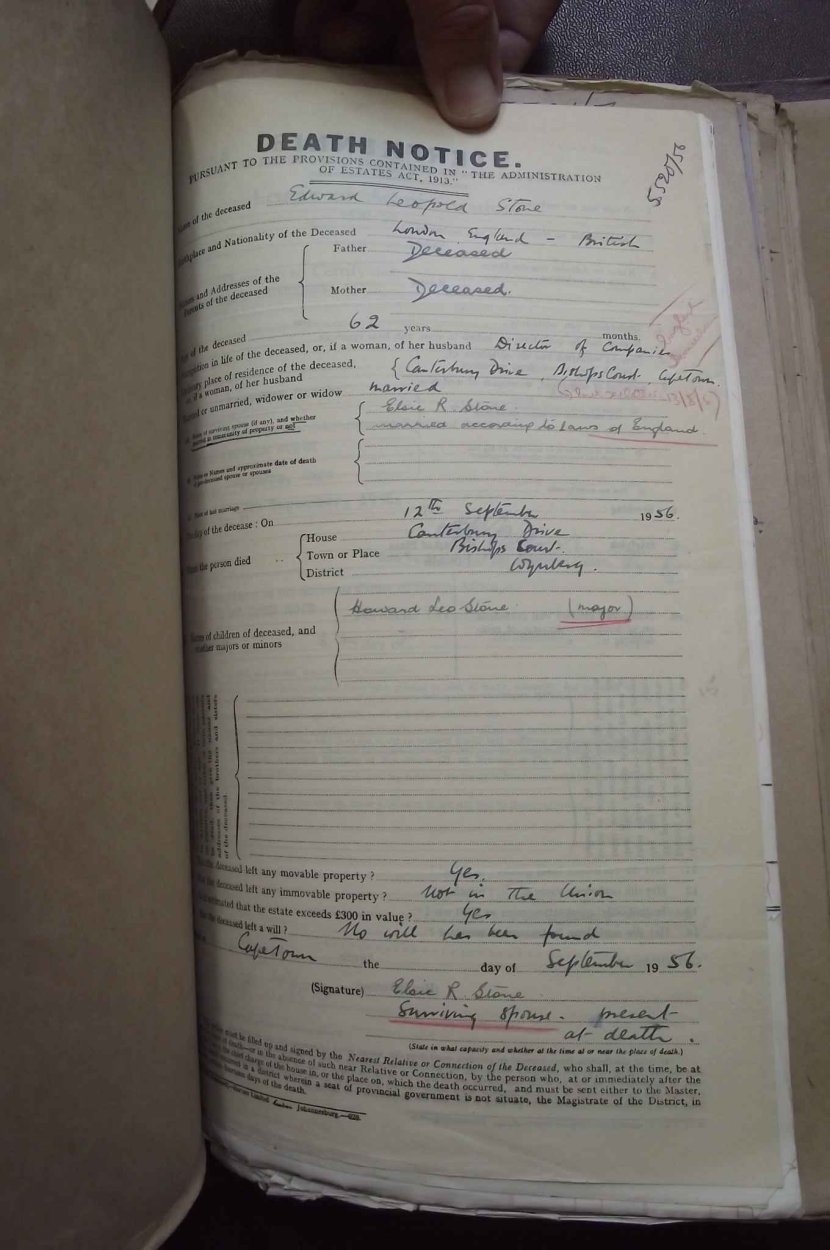 DEATH NOTICE.
PURSUANT TO THE PROVISIONS CONTAINED IN "THE ADMINISTRATION
OF ESTATES ACT, 1913."
5520/56
of the deceased Edward Leopold Stone
Birthplace and Nationality of the Deceased London England - British
Names and Addresses of the
Parents of the deceased
Father Deceased
Mother Deceased.
of the deceased 62 years months.
in life of the deceased, or, if a woman, of her husband Director of Companies
place of residence of the deceased,
if a woman, of her husband
Canterbury Drive, Bishops Court, Cape Town.
or unmarried, widower or widow married
of surviving spouse (if any), and whether
married in community of property or not
Elsie R. Stone.
married according to Laws of England.
Names and approximate date of death
of pre-deceased spouse or spouses
Place of last marriage
day of the decease : On 12th September 1956.
the person died
House Canterbury Drive
Town or Place Bishops Court.
District Wynberg.
of children of deceased, and
whether majors or minors
Howard Leo Stone (major)
addresses of the brothers and sisters
of the deceased.
deceased left any movable property ? Yes.
deceased left any immovable property ? Not in the Union
estimated that the estate exceeds £300 in value ? Yes
the deceased left a will ? No will has been found
Cape Town the day of September 1956.
(Signature) Elsie R Stone
Surviving spouse - present
at death.
(State in what capacity and whether at the time at or near the place of death.)
must be filled up and signed by the Nearest Relative or Connection of the Deceased, who shall, at the time, be at
of death—or in the absence of such near Relative or Connection, by the person who, at or immediately after the
the chief charge of the house in, or the place on, which the death occurred, and must be sent either to the Master,
in a district wherein a seat of provincial government is not situate, the Magistrate of the District, in
days of the death.
Limited Johannesburg.